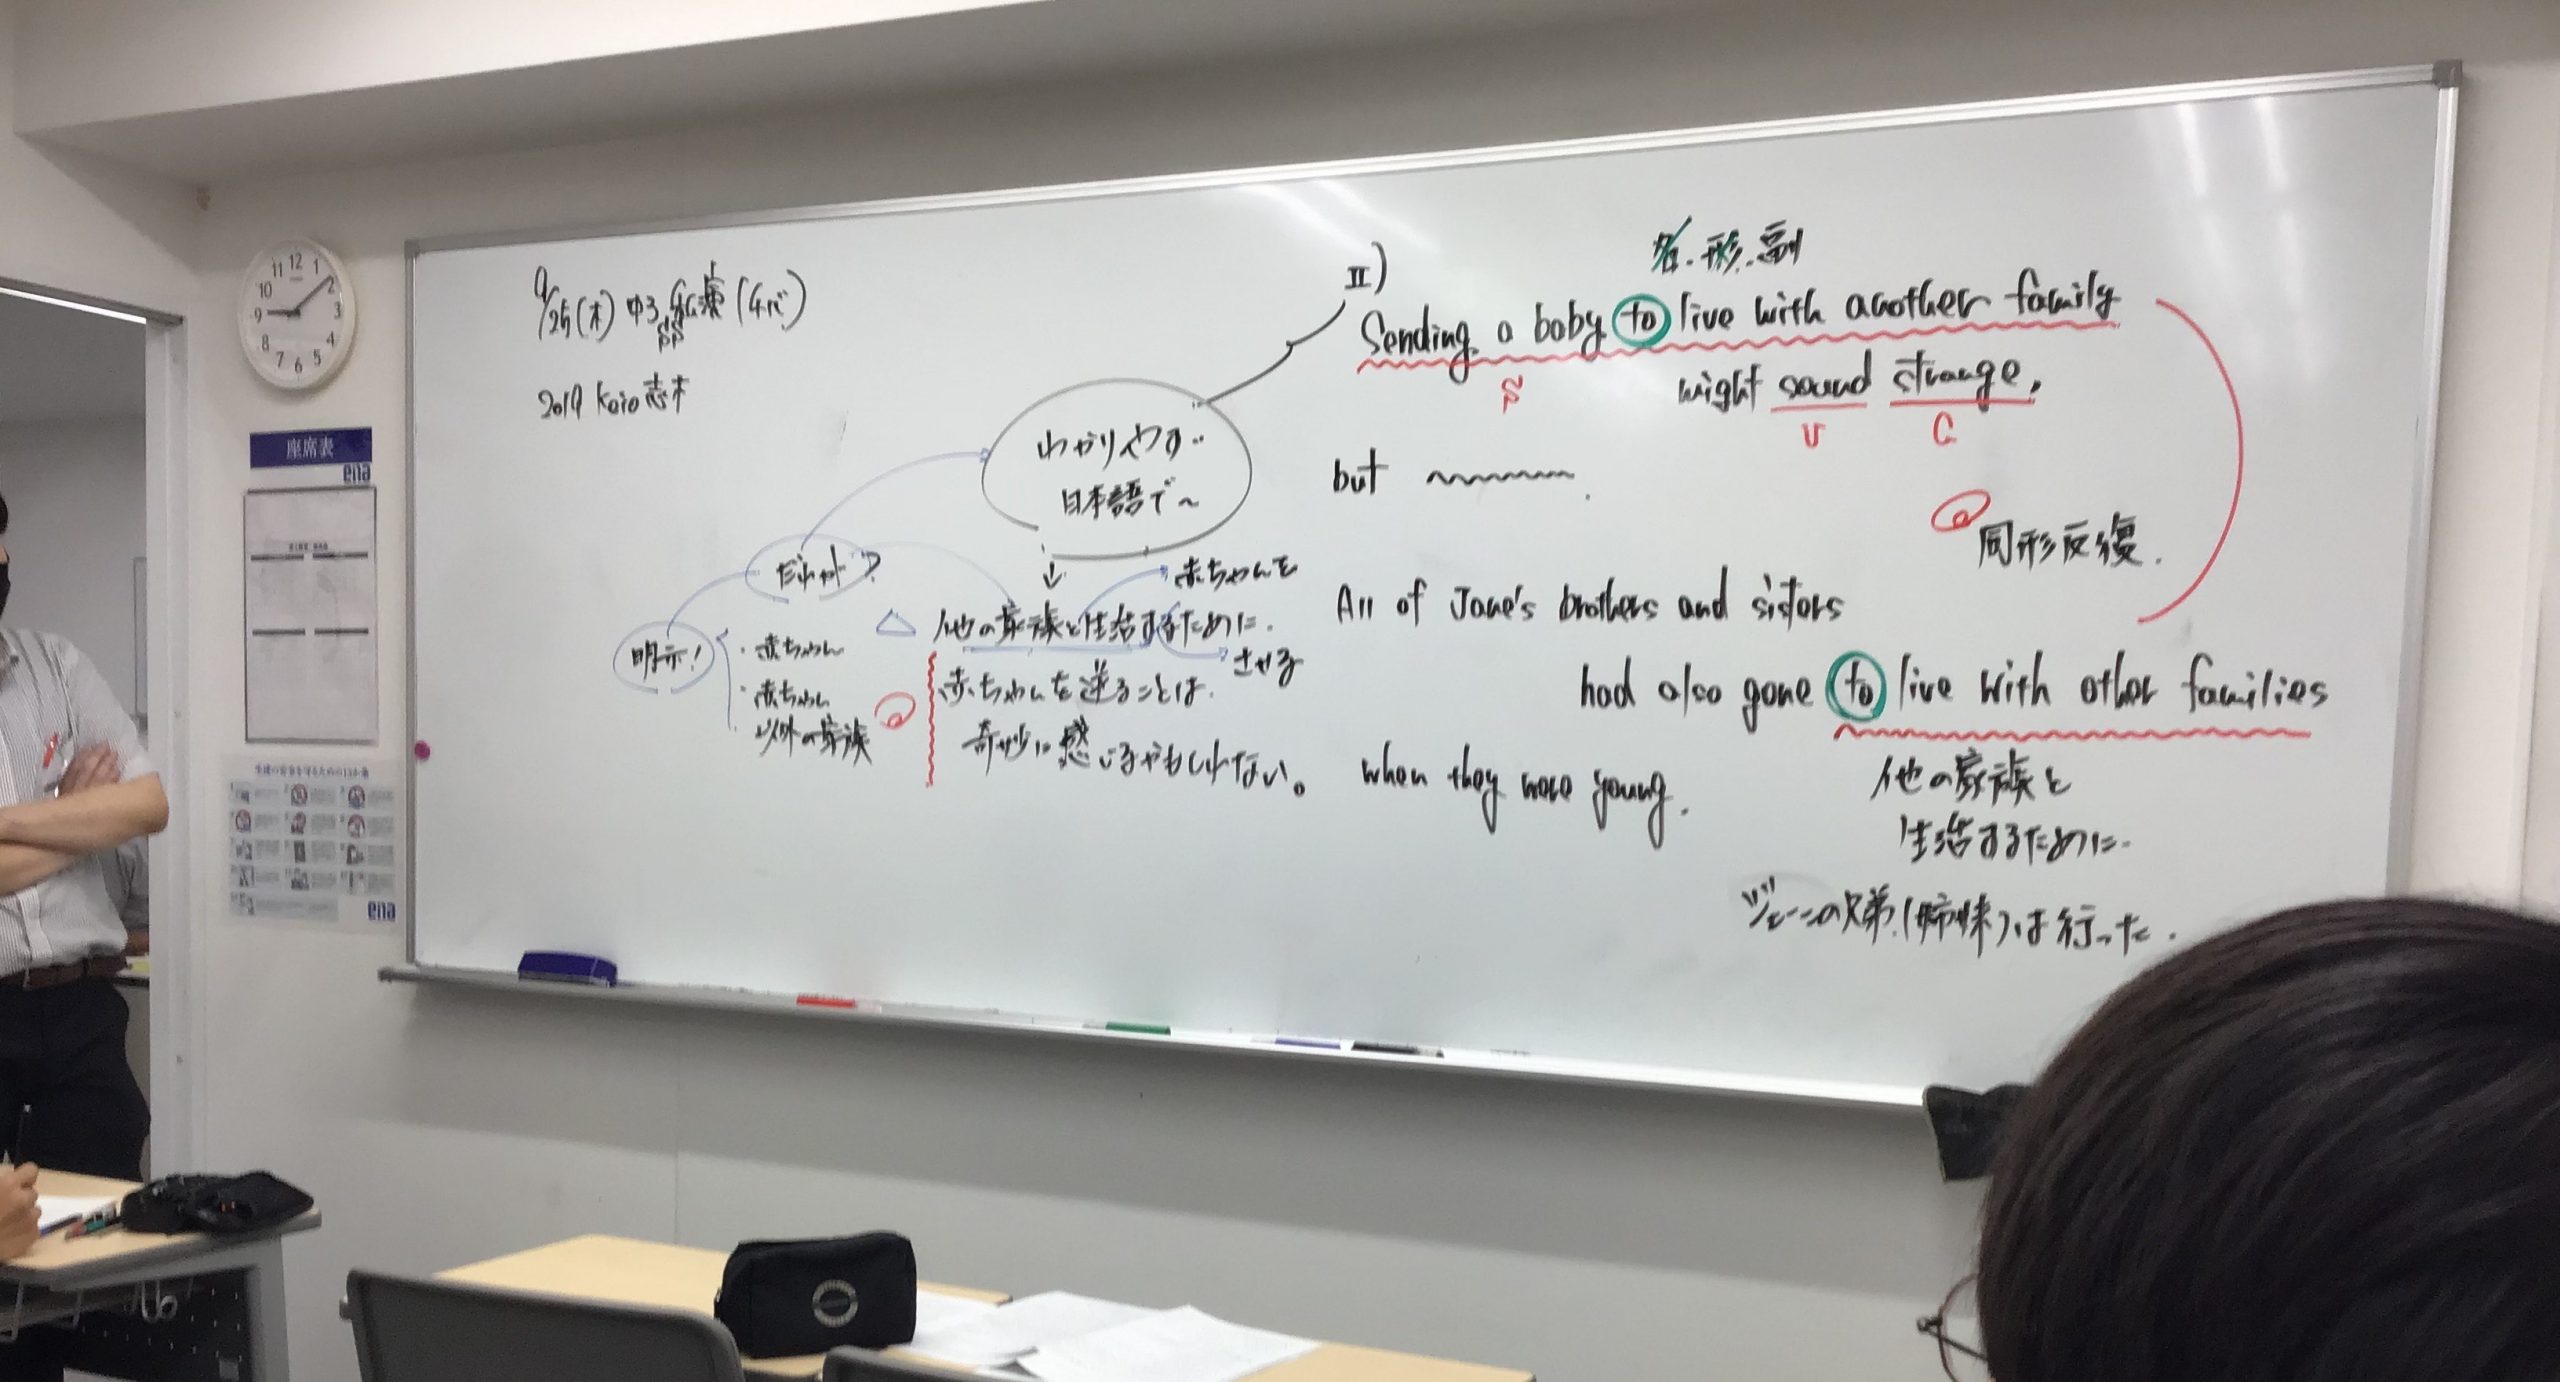 9/25(木) 中3
2019 Keio 志木
わかりやすい
日本語で〜
だれが?
明示!
・赤ちゃん
・赤ちゃん
以外の家族
赤ちゃんを
△ 他の家族と生活するために.
させる
赤ちゃんを送ることは.
奇妙に感じるかもしれない。
II)
名.形.副
Sending a baby to live with another family
S
might sound strange,
V C
but
同形反復.
All of Jane's brothers and sisters
had also gone to live with other families
when they were young.
他の家族と
生活するために.
ジェーンの兄弟(姉妹)は行った.
座席表
ena
ena
12
1
2
3
4
5
6
7
8
9
10
11